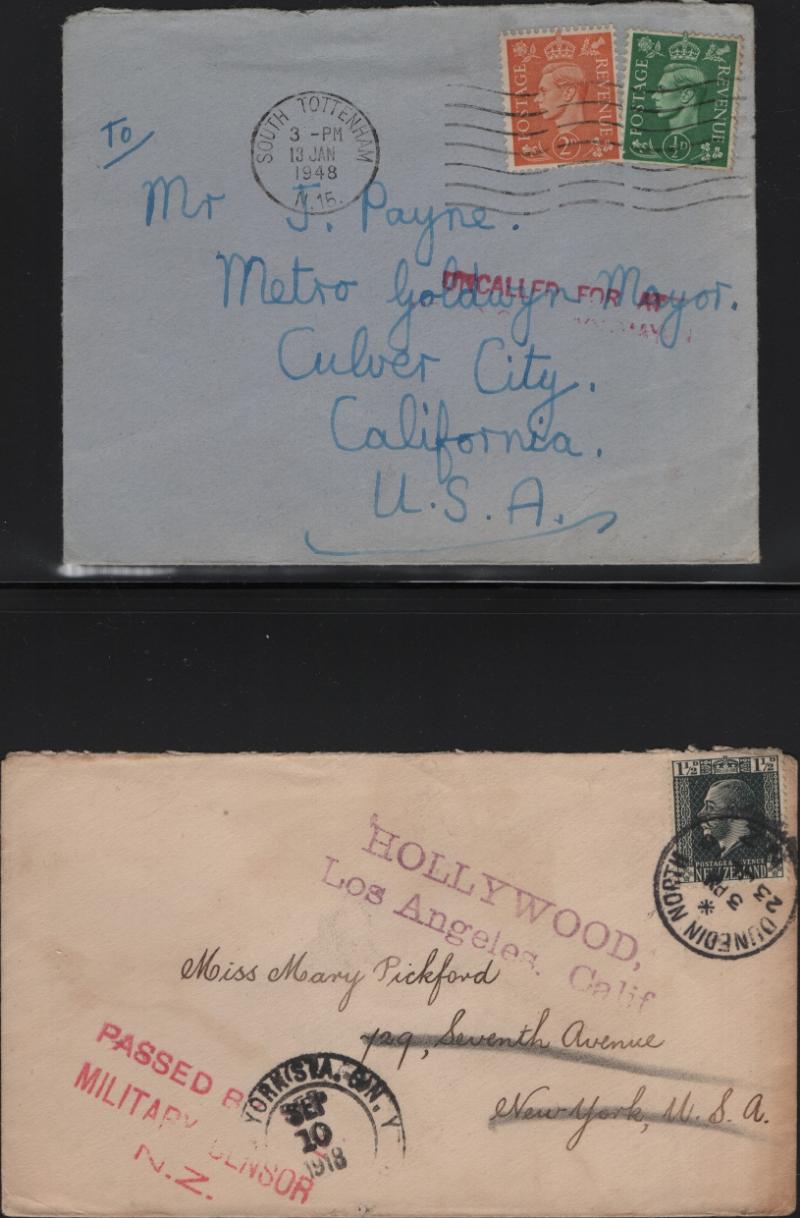 POSTAGE REVENUE
2D
POSTAGE REVENUE
½D
SOUTH TOTTENHAM
3 -PM
13 JAN
1948
N.15.
To
Mr J. Payne.
Metro Goldwyn Mayor.
UNCALLED FOR AT
Culver City.
California.
U.S.A.
1½D 1½D
POSTAGE & REVENUE
NEW ZEALAND
DUNEDIN NORTH
3 PM
23
HOLLYWOOD,
Los Angeles, Calif
Miss Mary Pickford
729, Seventh Avenue
New York, U.S.A.
PASSED B
MILITARY CENSOR
N.Z.
YORK STA. N.Y
SEP
10
1918